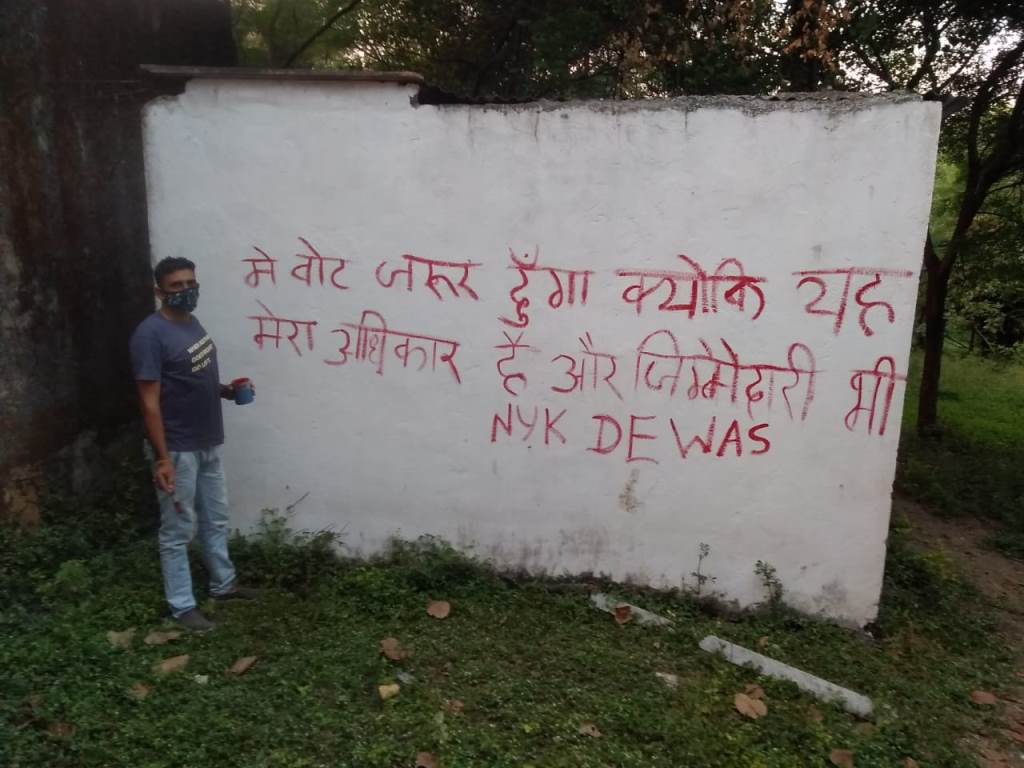 मे वोट जरूर दुँगा क्योकि यह
मेरा अधिकार है और जिम्मेदारी भी
NYK DEWAS